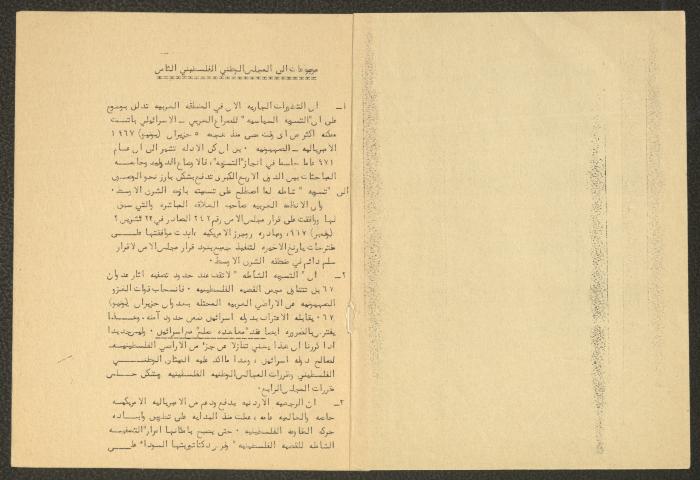 موضوعات الى المجلس الوطني الفلسطيني الثامن
١ـ ان التطورات الجارية الان في المنطقة العربية تدلل بوضوح
على ان "التسوية السياسية" للصراع العربي ـ الاسرائيلي باتت
ممكنة اكثر من اي وقت مضى منذ هجمة ٥ حزيران (يونيو) ١٩٦٧
الامبريالية ـ الصهيونية ٠ بل ان كل الادلة تشير الى ان عام
٩٧١ عاما حاسما في انجاز "التسوية"، فالاوضاع الدولية وخاصة
المباحثات بين الدول الاربع الكبرى تدفع بشكل بارز نحو الوصول
الى "تسوية" شاملة لما اصطلح على تسميته بأزمة الشرق الاوسط ٠
وان الانظمة العربية صاحبة العلاقة المباشرة والتي سبق
لها ووافقت على قرار مجلس الامن رقم ٢٤٢ الصادر في ٢٢ تشرين ٢
(نوفمبر) ٩١٧، ومبادرة روجرز الامريكية، ابدت موافقتها علـــى
مقترحات يارنغ الاخيرة لتنفيذ جميع بنود قرار مجلس الامن لاقرار
سلم دائم في منطقة الشرق الاوسط ٠
٢ـ ان "التسوية الشاملة" لا تقف عند حدود تصفية اثار عدوان
٦٧ بل تتناول صميم القضية الفلسطينية ٠ فانسحاب قوات الغزو
الصهيونية من الاراضي العربية المحتلة بعدوان حزيران (يونيو)
٦٧ يقابله الاعتراف بدولة اسرائيل ضمن حدود آمنة، وهـــذا
يفترض بالضرورة ايضا عقد "معاهدة صلح" مع اسرائيل ٠ وليس جديدا
اذا كررنا ان هذا يعني تنازلا عن جزء من الاراضي الفلسطينيــة
لصالح دولة اسرائيل، وهذا ما اكد عليه الميثاق الوطنــــي
الفلسطيني ومقررات المجالس الوطنية الفلسطينية وبشكل خـــاص
مقررات المجلس الرابع ٠
٣ـ ان الرجعية الاردنية بدفع ودعم من الامبريالية الامريكية
خاصة والعالمية عامة، عملت منذ البداية على تطويق وابـــادة
حركة المقاومة الفلسطينية ٠ حتى يصبح بامكانها امرار "التصفيـة
الشاملة للقضية الفلسطينية" وفرض دكتاتوريتها السوداء علـــى